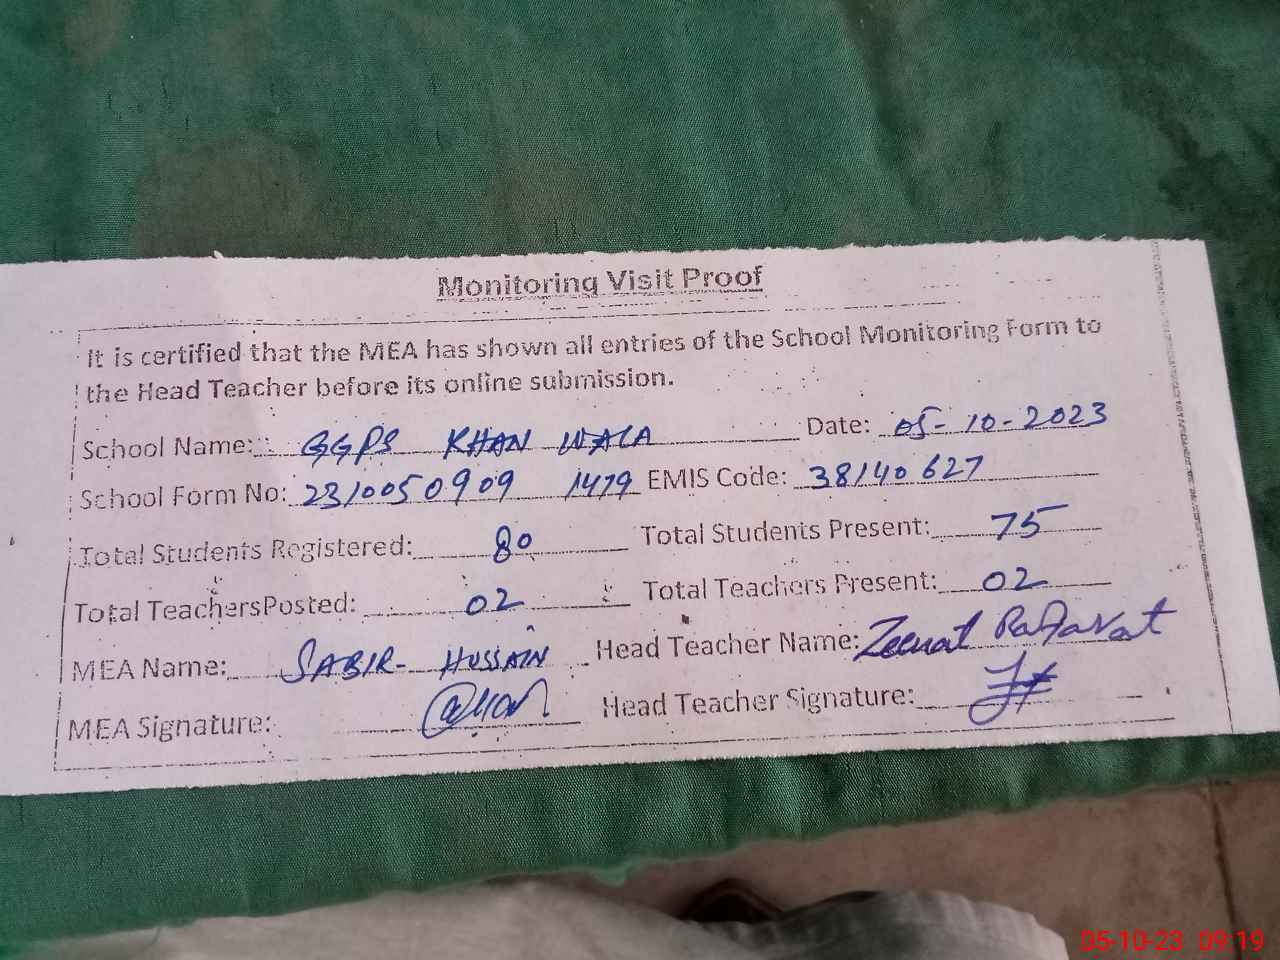 Monitoring Visit Proof
It is certified that the MEA has shown all entries of the School Monitoring Form to
the Head Teacher before its online submission.
School Name: GGPS KHAN WALA Date: 05-10-2023
School Form No: 2310050909 1479 EMIS Code: 38140627
Total Students Registered: 80 Total Students Present: 75
Total TeachersPosted: 02 Total Teachers Present: 02
MEA Name: SABIR- HUSSAIN Head Teacher Name: Zeenat
MEA Signature: Head Teacher Signature:
05-10-23 09:19